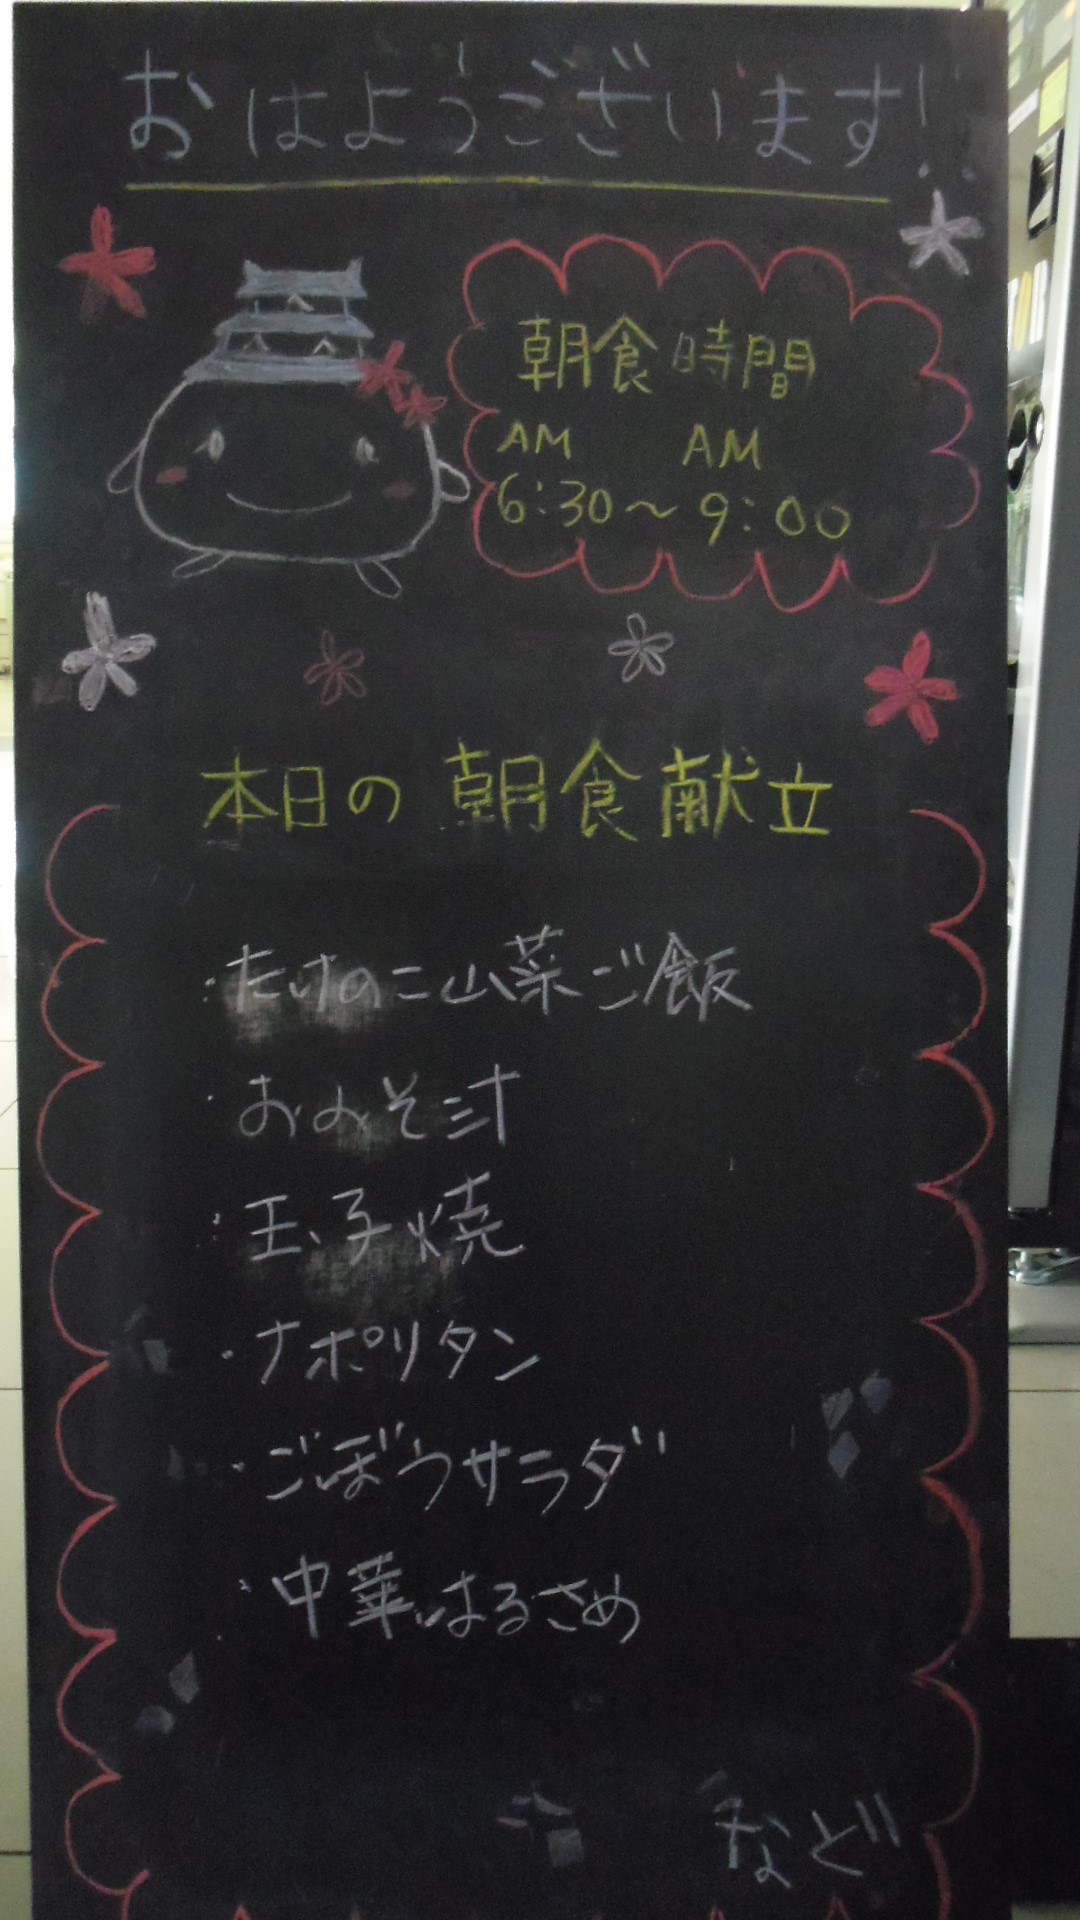 おはようございます!!
朝食時間
AM AM
6:30〜9:00
本日の朝食献立
・たけのこ山菜ご飯
・おみそ汁
・玉子焼
・ナポリタン
・ごぼうサラダ
・中華はるさめ
など